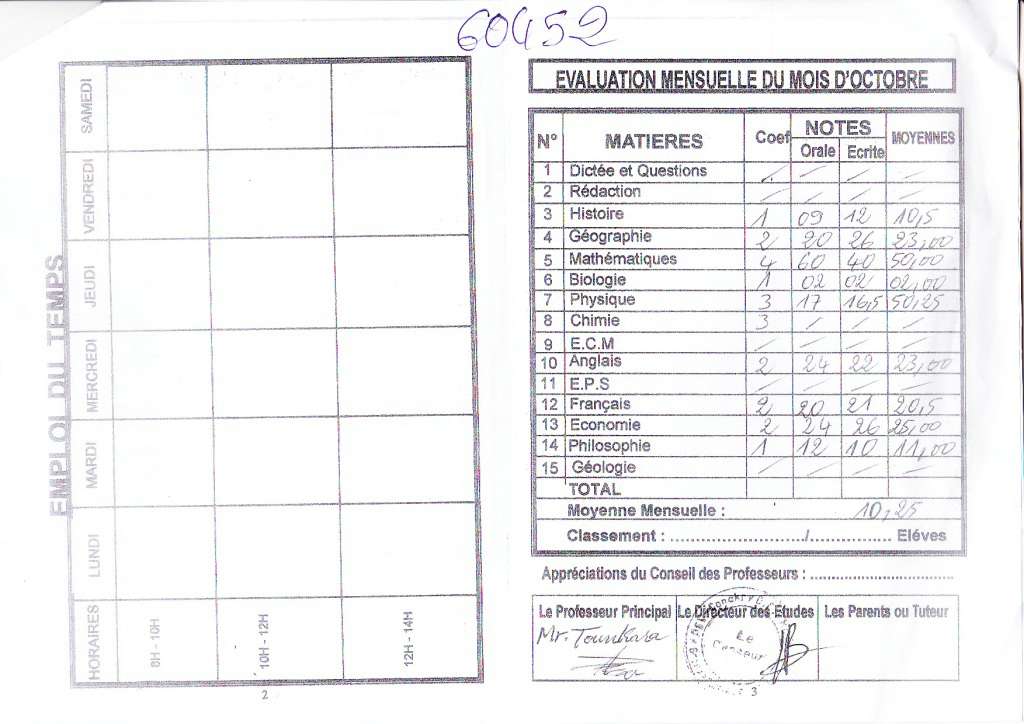 60452
EMPLOI DU TEMPS
SAMEDI
VENDREDI
JEUDI
MERCREDI
MARDI
LUNDI
HORAIRES
8H - 10H
10H - 12H
12H - 14H
2
EVALUATION MENSUELLE DU MOIS D'OCTOBRE
N° MATIERES Coef NOTES MOYENNES
Orale Ecrite
1 Dictée et Questions / / / /
2 Rédaction / / / /
3 Histoire 1 09 12 10,5
4 Géographie 2 20 26 23,00
5 Mathématiques 4 60 40 50,00
6 Biologie 1 02 02 02,00
7 Physique 3 17 16,5 50,25
8 Chimie 3 / / /
9 E.C.M / / / /
10 Anglais 2 24 22 23,00
11 E.P.S / / / /
12 Français 2 20 21 20,5
13 Economie 2 24 26 25,00
14 Philosophie 1 12 10 11,00
15 Géologie / / / /
TOTAL
Moyenne Mensuelle : 10,25
Classement : ........................../................ Eléves
Appréciations du Conseil des Professeurs : ..................................
Le Professeur Principal Le Directeur des Etudes Les Parents ou Tuteur
Mr. Tounkara
Le Censeur
3